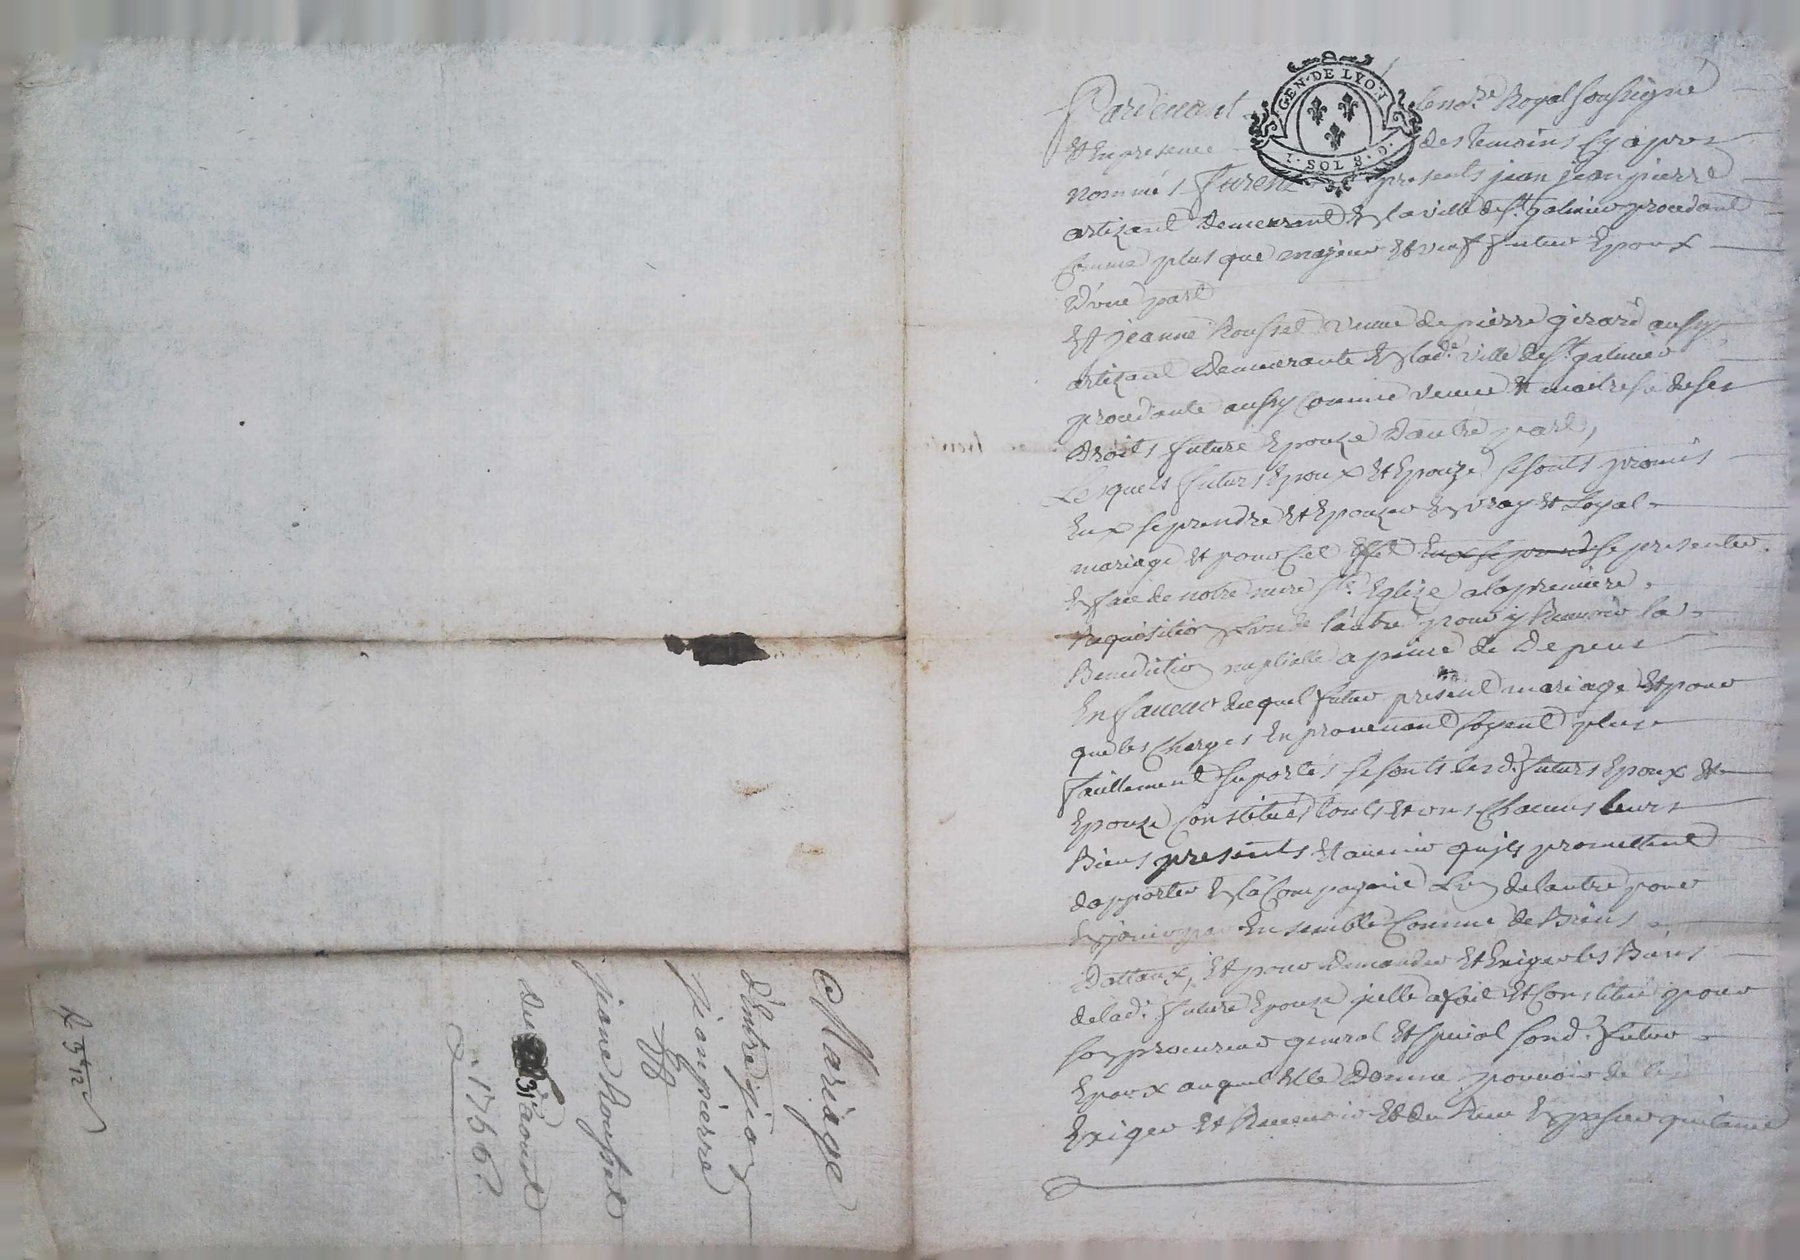 GEN · DE LYON
1 · SOL 8 · D
Pardevant le no.re Royal soussigné
Et En presence des temoins Cy apres
nommés furent presents jean jeanpierre
artizant Demeurant En la ville de S.t galmier procedant
Comme plus que majeur Et veuf futur Epoux
D'une part
Et jeanne Roussel veuve de pierre girard aussy
artizant Demeurante En lad.e ville de S.t galmier
procedante aussy Comme veuve Et maitresse de ses
Droits future Epouze D'autre part,
Lesquels futurs Epoux Et Epouze se sonts promis
Eux se prendre Et Epouzer En vray Et Loyal
mariage Et pour Cet Effet Eux se prend se presenter
En face de notre mere S.te Eglize a la premiere
Requisition L'un de l'autre pour y Recevoir la
Benediction nuptialle a peine de Depens
En faveur duquel futur present mariage Et pour
que les Charges En provenant soyent plus
facillement suportés se sonts lesd. futurs Epoux Et
Epouze Constitués touts Et uns Chacuns leurs
Biens presents Et avenir qu'ils promettent
d'apporter En la Compagnie L'un de l'autre pour
En jouir Ensemble Comme de Biens
Dottaux, Et pour Demander Et Exiger les Biens
de lad. future Epouze jcelle a fait Et Constitué pour
son procureur general Et special sond. futur
Epoux auquel Elle Donne pouvoir de les
Exiger Et Recevoir Et du Recu En passer quitance
Mariage
d'Entre jean
jeanpierre
Et
jeanne Roussel
du 31 aoust
1756